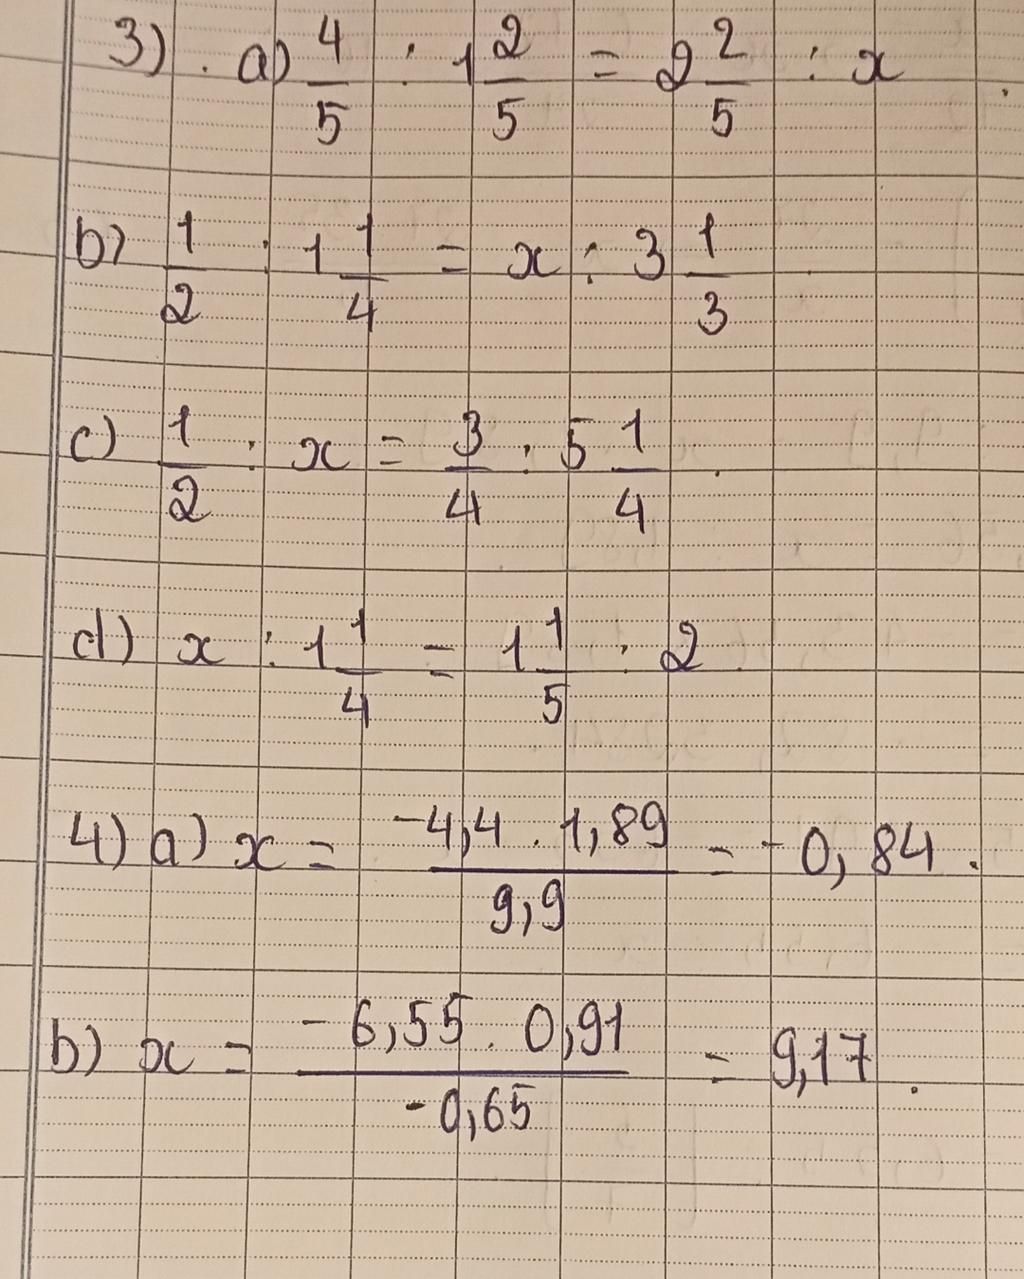 3). a) 4/5 : 1 2/5 = 2 2/5 : x.
b) 1/2 : 1 1/4 = x : 3 1/3
c) 1/2 : x = 3/4 : 5 1/4.
d) x : 1 1/4 = 1 1/5 : 2
4) a) x = -4,4 . 1,89 / 9,9 = -0,84.
b) x = -6,55 . 0,91 / -0,65 = 9,17.